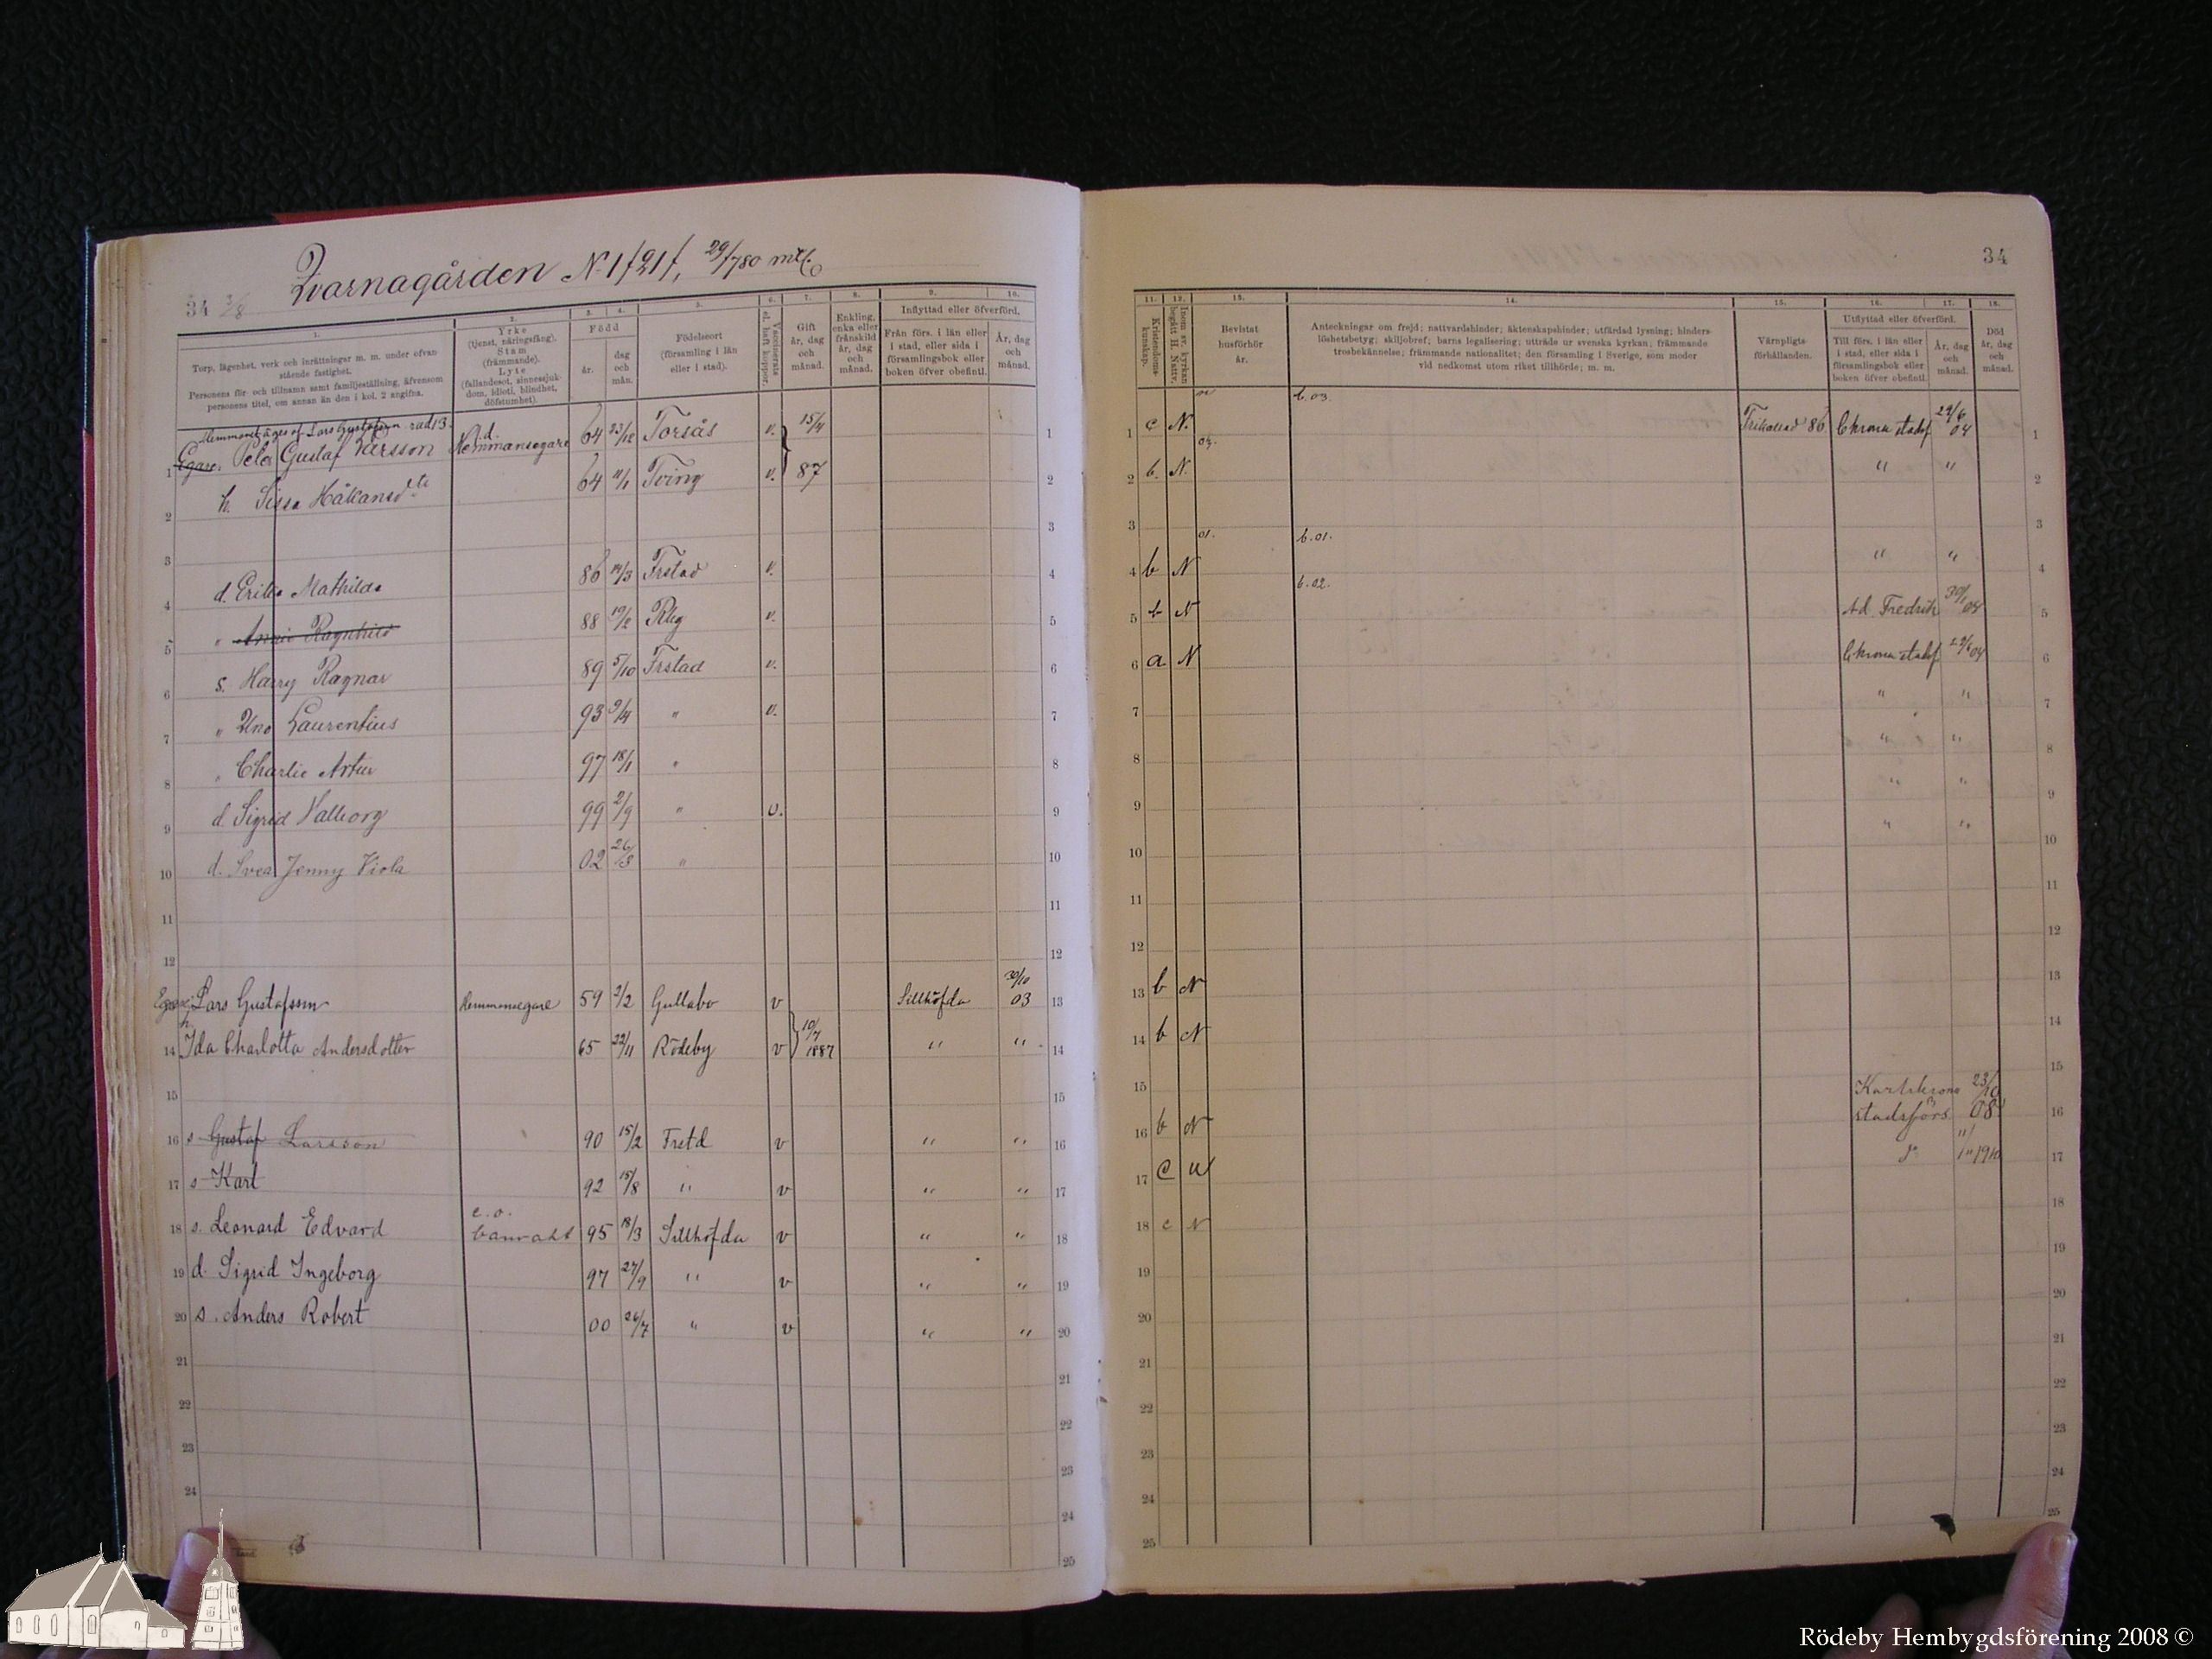 34
Qvarnagården N. 1 f 21 f, 29/780 mtl.
1.
Torp, lägenhet, verk och inrättningar m. m. under ofvan
stående fastighet.
Personens för- och tillnamn samt familjeställning, äfvensom
personens titel, om annan än den i kol. 2 angifna.
2.
Yrke
(tjenst, näringsfång).
Stam
(främmande).
Lyte
(fallandesot, sinnessjuk-
dom, idioti, blindhet,
döfstumhet).
3. 4.
Född
år.
dag
och
mån.
5.
Födelseort
(församling i län
eller i stad).
6.
Vaccinerats
el. haft koppor.
7.
Gift
år, dag
och
månad.
8.
Enkling,
enka eller
frånskild
år, dag
och
månad.
9. 10.
Inflyttad eller öfverförd.
Från förs. i län eller
i stad, eller sida i
församlingsbok eller
boken öfver obefintl.
År, dag
och
månad.
Hemmanet äges af Lars Gustafsson rad 13.
1 Egare Peter Gustaf Persson Hemmansegare 64 23/12 Torsås v. 15/4 1
2 h. Sissa Håkansdtr 64 11/1 Tving v. 87 2
3 3
4 d. Erika Mathilda 86 14/3 Frstad v. 4
5 " Annie Ragnhild 88 19/2 Rbg v. 5
6 s. Harry Ragnar 89 5/10 Frstad v. 6
7 " Uno Laurentius 93 9/4 " v. 7
8 " Charlie Artur 97 18/1 " 8
9 d. Sigrid Valborg 99 2/9 " v. 9
10 d. Svea Jenny Viola 02 26/3 " 10
11 11
12 12
Egare: Lars Gustafsson Hemmansegare 59 2/2 Gullabo v Sillhöfda 30/10 03 13
h.
14 Ida Charlotta Andersdotter 65 22/11 Rödeby v 10/7 1887 " " 14
15 15
16 s Gustaf Larsson 90 15/2 Frstd v " " 16
17 s Karl 92 15/8 " v " " 17
e. o.
18 s. Leonard Edvard banvakt 95 18/3 Sillhöfda v " " 18
19 d. Sigrid Ingeborg 97 27/9 " v " " 19
20 s. Anders Robert 00 26/7 " v " " 20
21 21
22 22
23 23
24 24
25
34
11.
Kristendoms-
kunskap.
12.
Inom sv. kyrkan
begått H. Nattv.
13.
Bevistat
husförhör
år.
14.
Anteckningar om frejd; nattvardshinder; äktenskapshinder; utfärdad lysning; hinders-
löshetsbetyg; skiljobref; barns legalisering; utträde ur svenska kyrkan; främmande
trosbekännelse; främmande nationalitet; den församling i Sverige, som moder
vid nedkomst utom riket tillhörde; m. m.
15.
Värnpligts-
förhållanden.
16. 17.
Utflyttad eller öfverförd.
Till förs. i län eller
i stad, eller sida i
församlingsbok eller
boken öfver obefintl.
År, dag
och
månad.
18.
Död
år, dag
och
månad.
b. 03.
1 c N. Frikallad 86 Ckrona stadsf. 29/6 04 1
2 b. N. " " 2
3 3
01. b. 01.
4 b N " " 4
b. 02.
5 b N Ad. Fredrik 30/1 04 5
6 a N Ckrona stadsf. 29/6 04 6
7 " " 7
8 " " 8
9 " " 9
10 " " 10
11 11
12 12
13 b N 13
14 b N 14
15 15
16 b N Karlskrona stadsförs. 23/10 08 16
17 c N 1910 17
18 c N 18
19 19
20 20
21 21
22 22
23 23
24 24
25 25
Rödeby Hembygdsförening 2008 ©